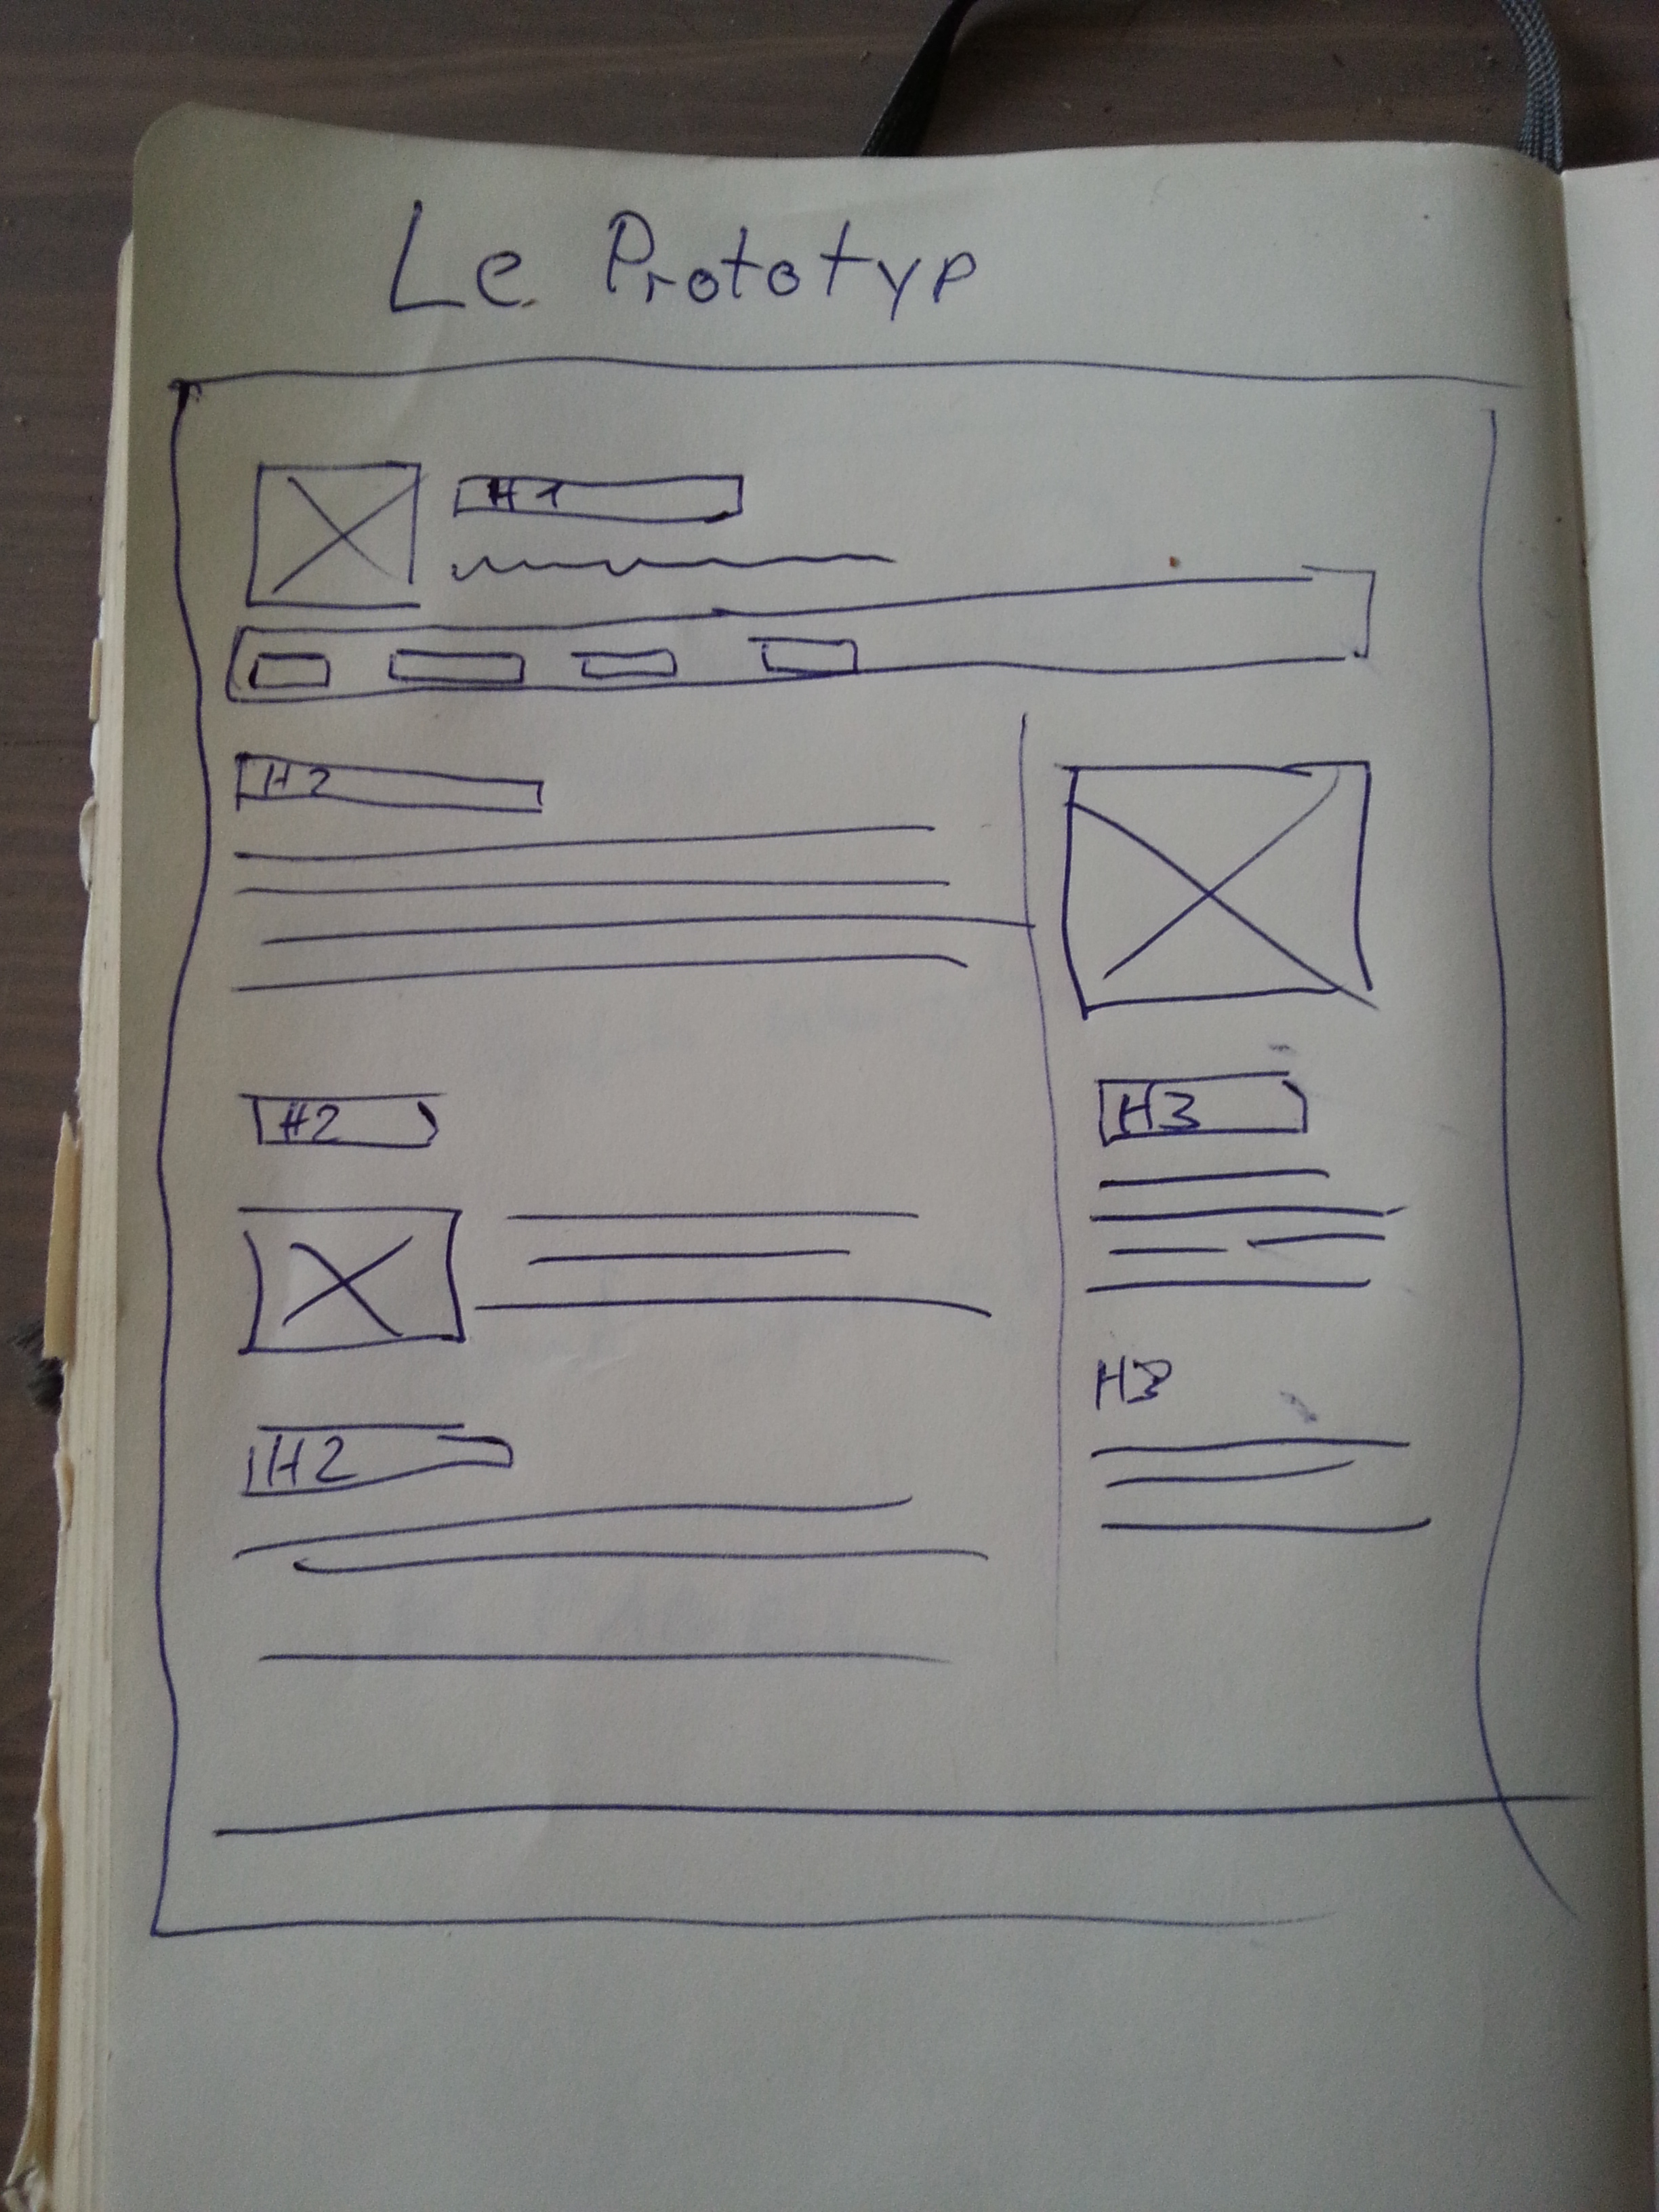 Le Prototyp
H1
H2
H2
H2
H3
H3